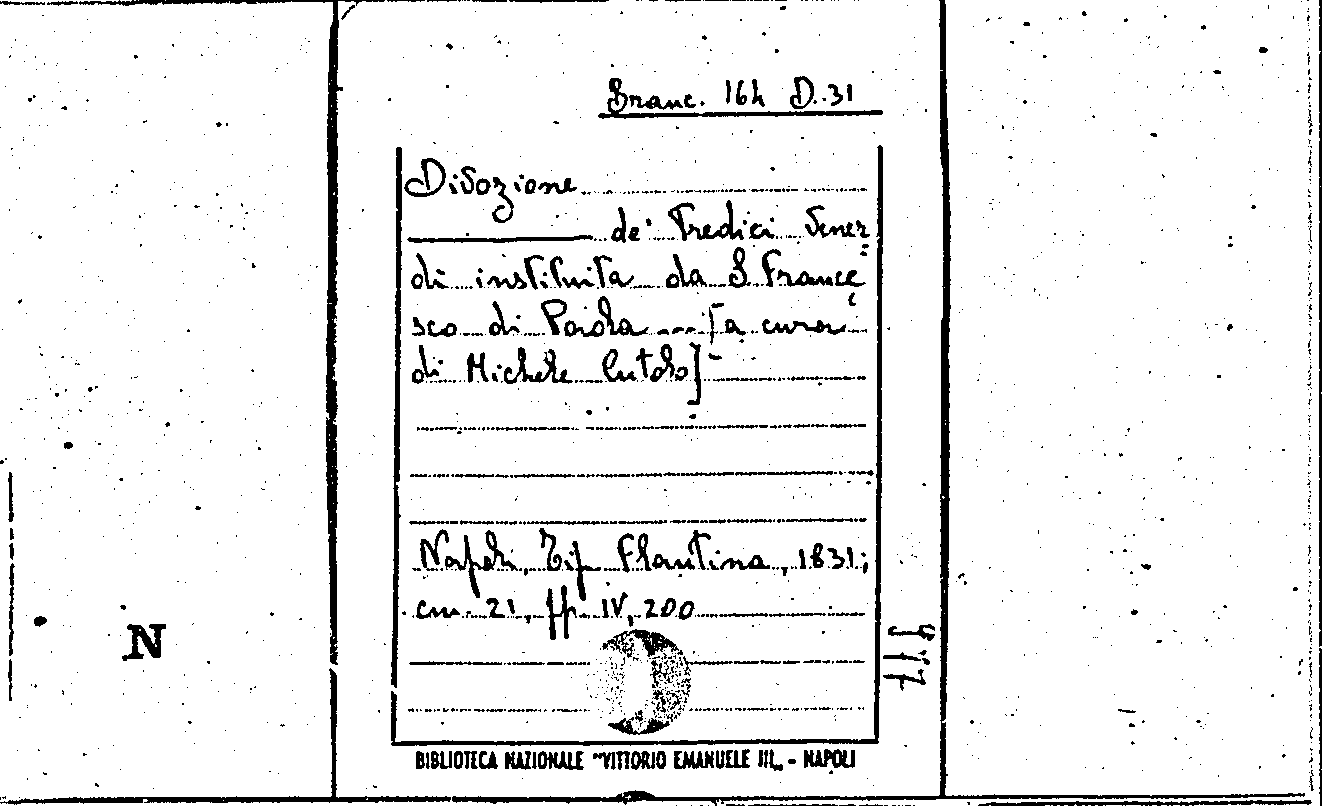 Branc. 16h D. 31
Divozione
de' Tredici Vener
di instituita da S. France
sco di Paola --- [a cura
di Michele Cutolo]
Napoli, Tip. Flautina, 1831;
cm. 21, pp. IV, 200
N
BIBLIOTECA NAZIONALE "VITTORIO EMANUELE III„ - NAPOLI